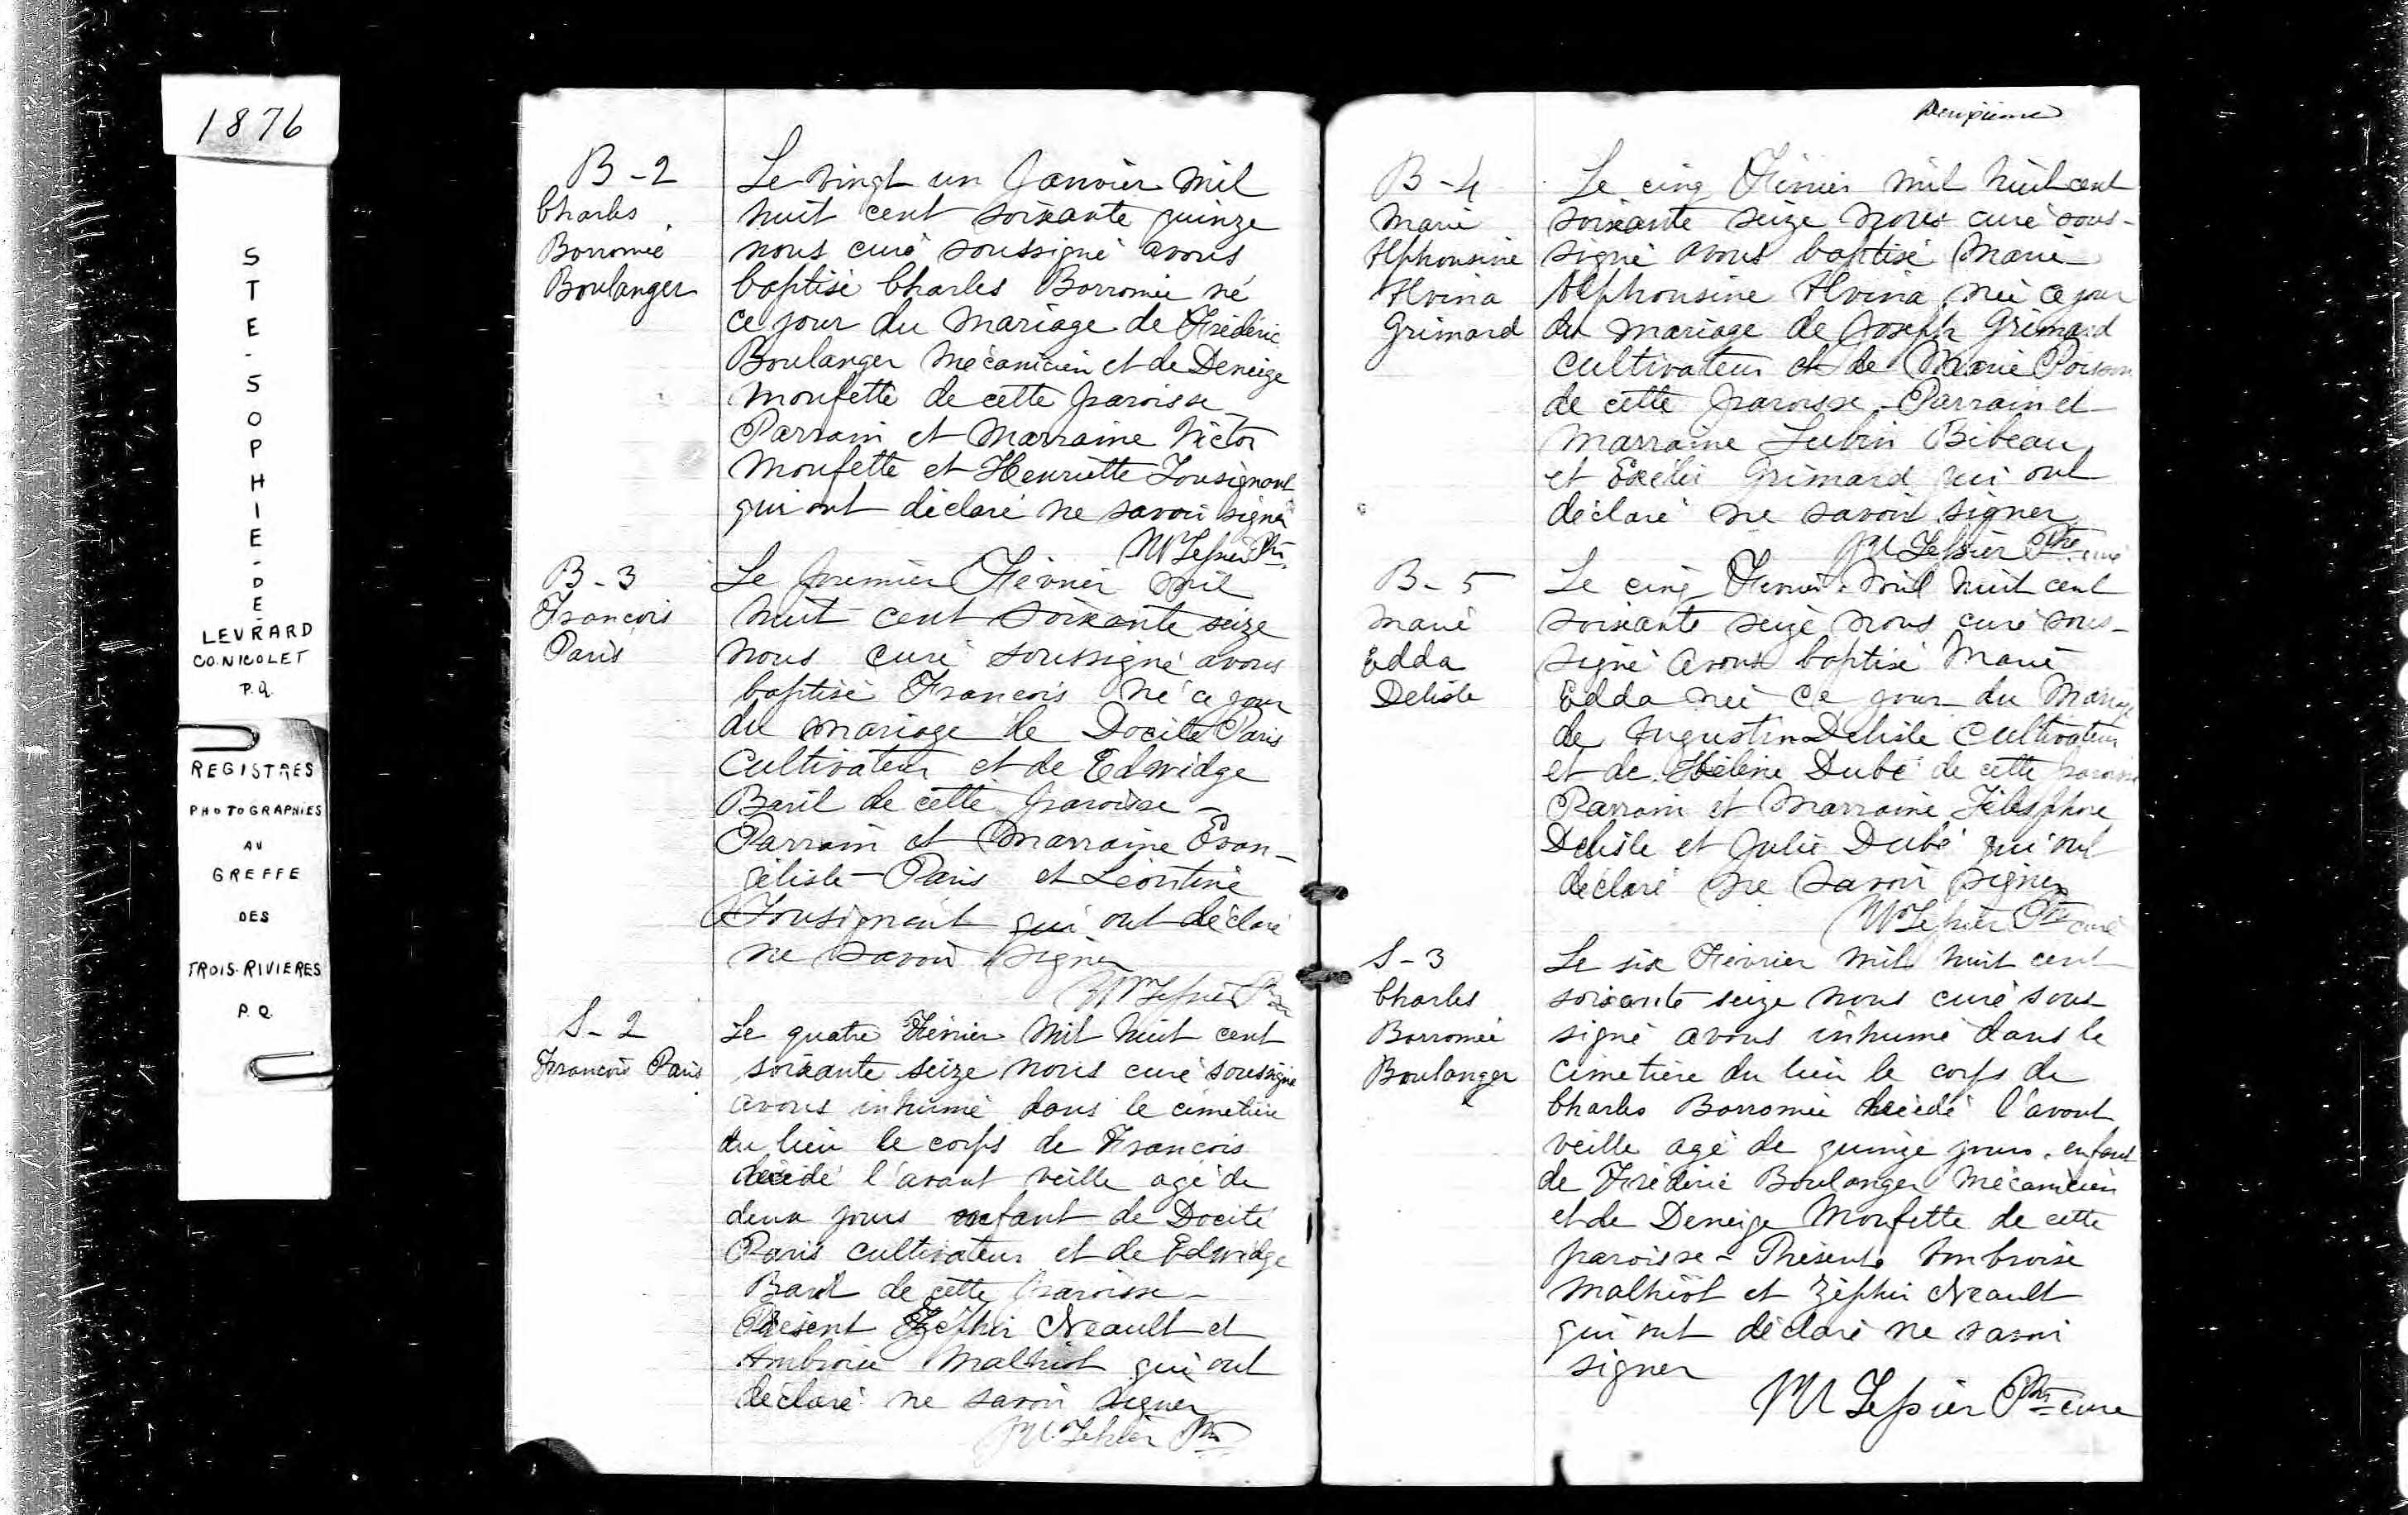 1876
STE-SOPHIE-DE-
LEVRARD
CO. NICOLET
P.Q.
REGISTRES
PHOTOGRAPHIES
AU
GREFFE
DES
TROIS-RIVIERES
P.Q.
B-2
Charles
Borromée
Boulanger
Le vingt un Janvier mil
huit cent soixante quinze
nous curé soussigné avons
baptisé Charles Borromée né
ce jour du mariage de Frédéric
Boulanger mécanicien et de Deneige
Moufette de cette paroisse_
Parrain et Marraine Victor
Moufette et Henriette Tousignant
qui ont déclaré ne savoir signer
M Tessier Ptre
B-3
François
Paris
Le premier Février mil
huit cent soixante seize
nous curé soussigné avons
baptisé François né ce jour
du mariage de Docité Paris
Cultivateur et de Edwidge
Baril de cette paroisse_
Parrain et Marraine Evan-
géliste Paris et Léontine
Tousignant qui ont déclaré
ne savoir signer
M Tessier Ptre
S-2
François Paris
Le quatre Février mil huit cent
soixante seize nous curé soussigné
avons inhumé dans le cimetière
du lieu le corps de François
décédé l'avant veille agé de
deux jours enfant de Docité
Paris cultivateur et de Edwidge
Baril de cette paroisse_
Présent Zéphir Neault et
Ambroise Malhiot qui ont
déclaré ne savoir signer
M Tessier Ptre
Deuxième
B-4
Marie
Alphonsine
Alvina
Grimard
Le cinq Février mil huit cent
soixante seize nous curé sous-
signé avons baptisé Marie
Alphonsine Alvina née ce jour
du mariage de Joseph Grimard
cultivateur et de Marie Poisson
de cette paroisse_Parrain et
Marraine Lubin Bibeau
et Exélie Grimard qui ont
déclaré ne savoir signer
M Tessier Ptre curé
B-5
Marie
Edda
Delisle
Le cinq Février mil huit cent
soixante seize nous curé sous-
signé avons baptisé Marie
Edda née ce jour du Mariage
de Augustin Delisle Cultivateur
et de Hélène Dubé de cette paroisse
Parrain et Marraine Télesphore
Delisle et Julie Dubé qui ont
déclaré ne savoir signer
M Tessier Ptre curé
S-3
Charles
Borromée
Boulanger
Le six Février mil huit cent
soixante seize nous curé sous
signé avons inhumé dans le
cimetière du lieu le corps de
Charles Borromée décédé l'avant
veille agé de quinze jours, enfant
de Frédéric Boulanger Mécanicien
et de Deneige Moufette de cette
paroisse - Présents Ambroise
Malhiot et Zéphir Neault
qui ont déclaré ne savoir
signer
M Tessier Ptre curé